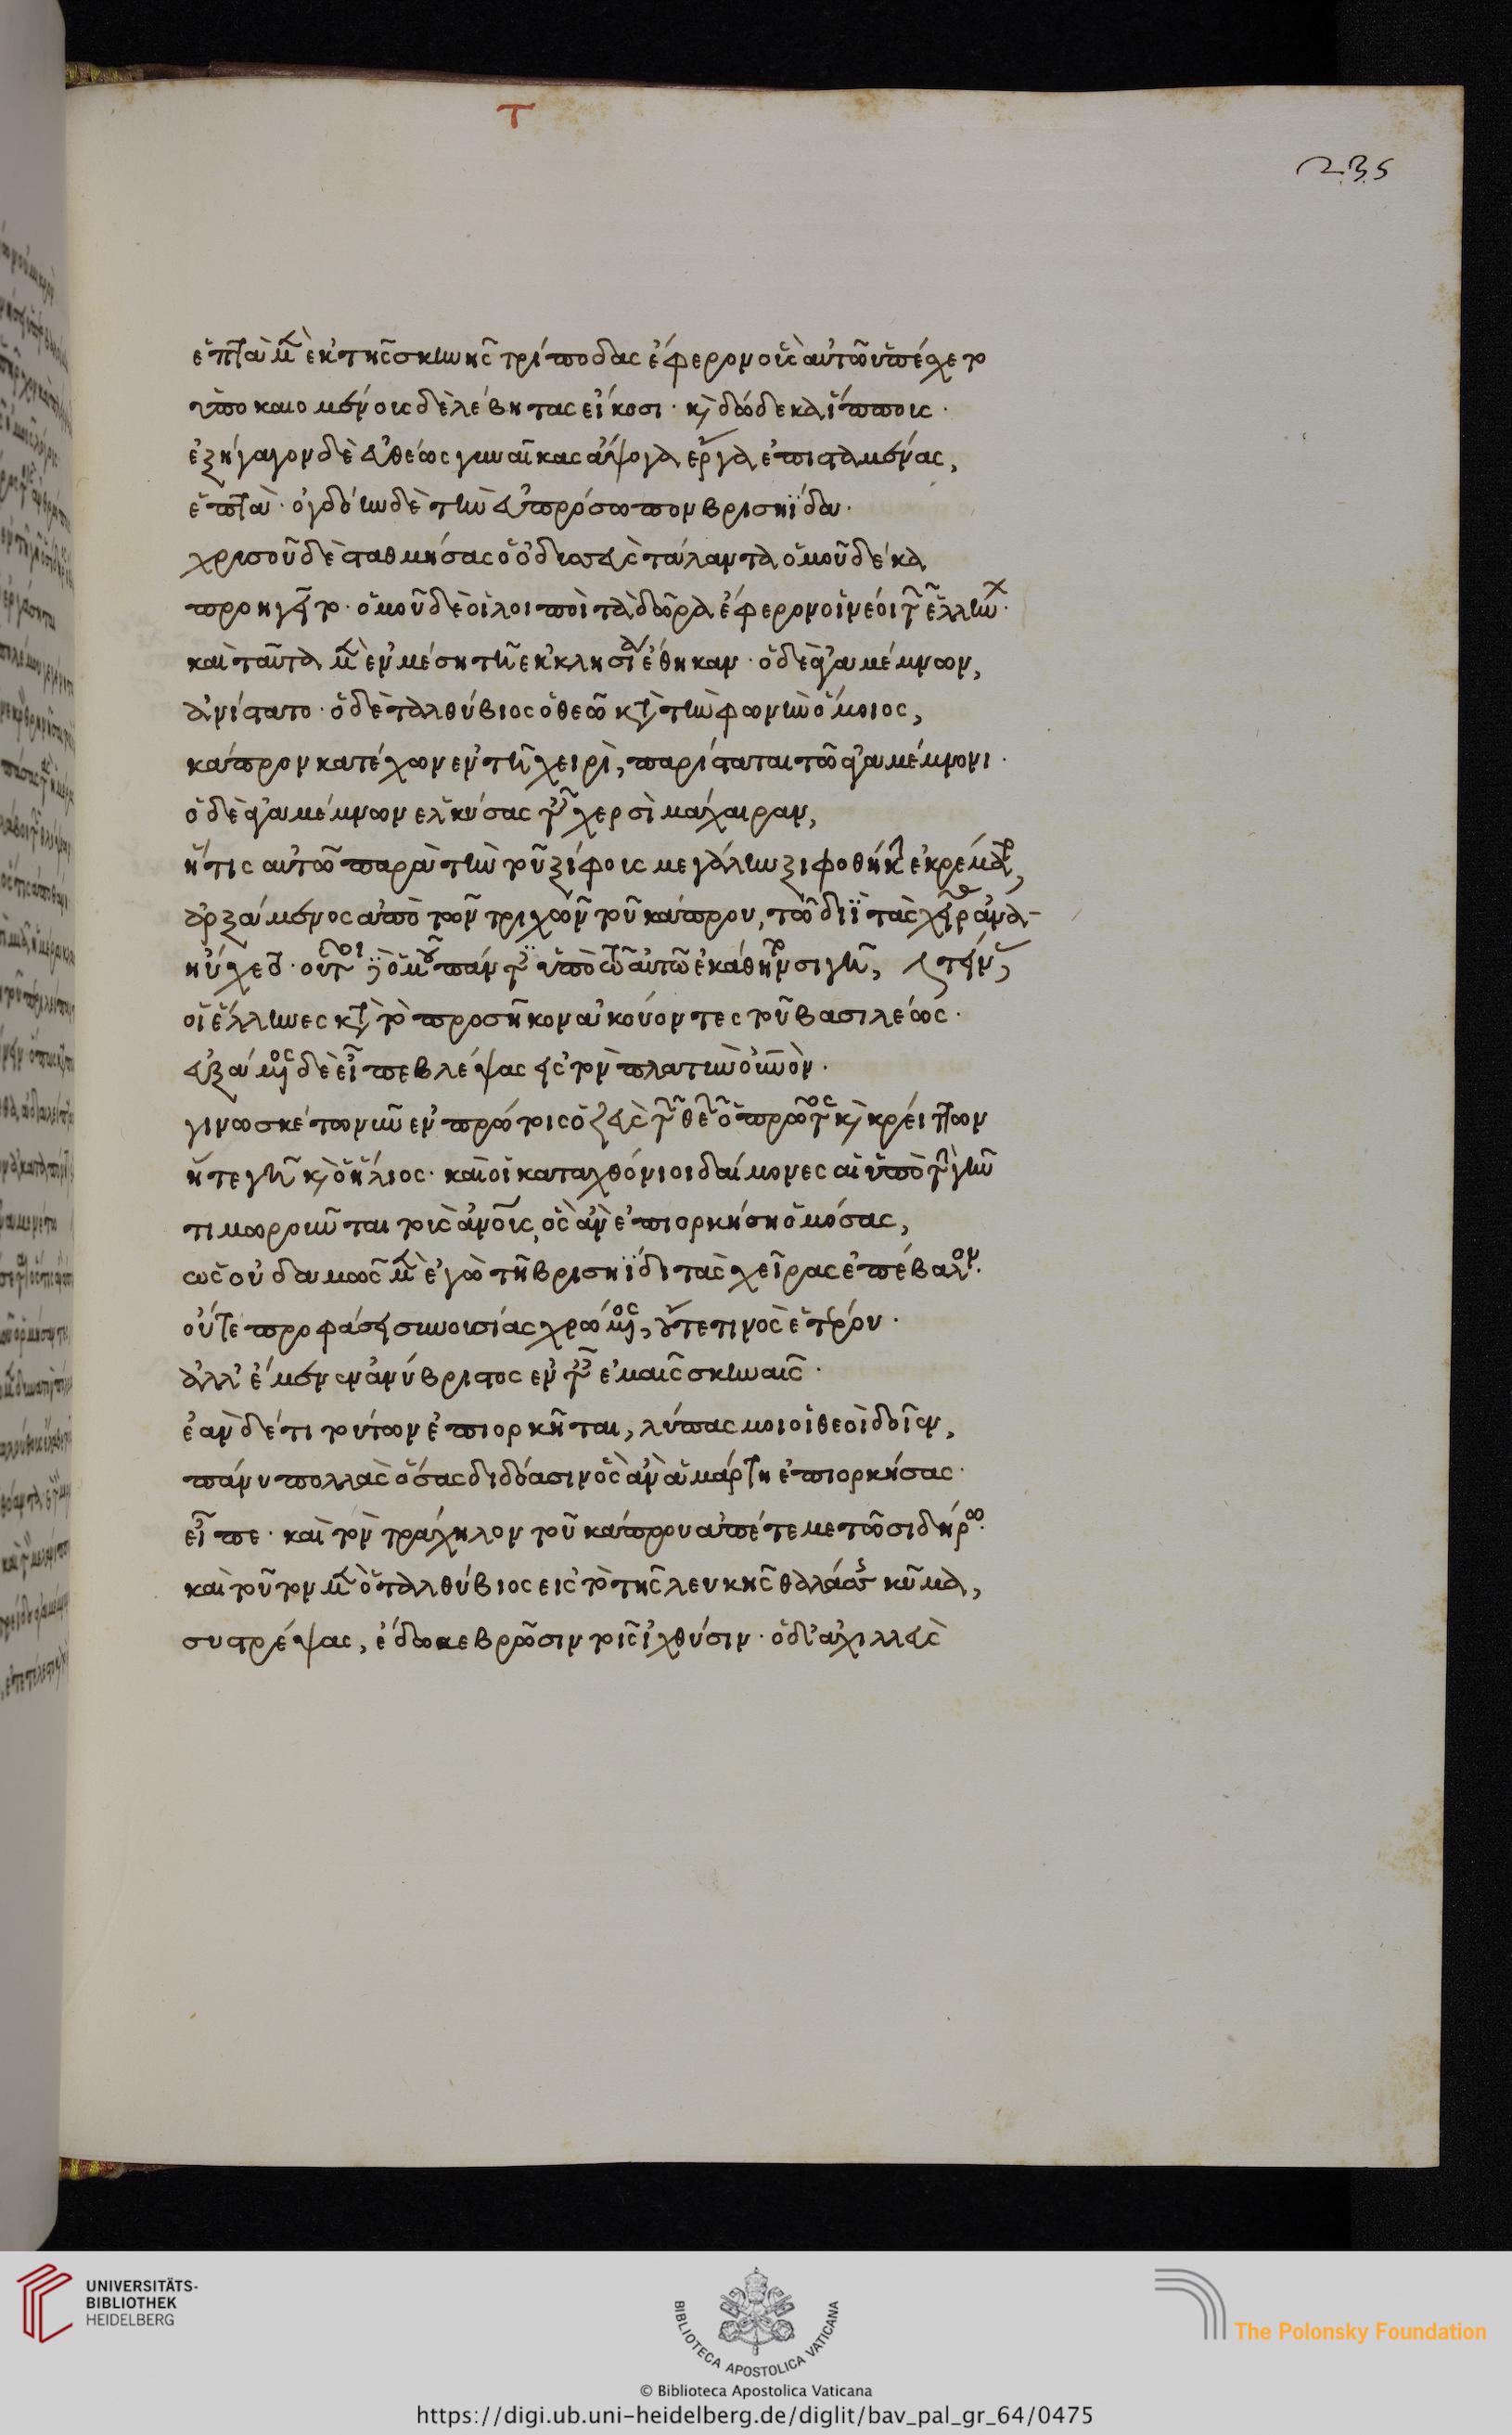 Τ
235
ἑπτὰ μὲν ἐκ τῆς σκηνῆς τρίποδας ἔφερον οὓς αὐτῶ ὑπέσχετο
ὑποκαιομένους δὲ λέβητας εἴκοσι· καὶ δώδεκα ἵππους·
ἐξήγαγον δὲ εὐθέως γυναῖκας ἄψογα ἔργα ἐπισταμένας,
ἑπτὰ· ὀγδόην δὲ τὴν εὐπρόσωπον βρισηΐδα·
χρυσοῦ δὲ σταθμήσας ὁ ὀδυσσεὺς τάλαντα ὁμοῦ δέκα
προηγεῖτο· ὁμοῦ δὲ οἱ λοιποὶ τὰ δῶρα ἔφερον οἱ νέοι τῶν ἑλλήνων·
καὶ ταῦτα μὲν ἐν μέση τῆ ἐκκλησία ἔθηκαν· ὁ δὲ ἀγαμέμνων,
ἀνίστατο· ὁ δὲ ταλθύβιος ὁ θεῶ κατὰ τὴν φωνὴν ὅμοιος,
κάπρον κατέχων ἐν τῆ χειρὶ, παρίσταται τῶ ἀγαμέμνονι·
ὁ δὲ ἀγαμέμνων ἑλκύσας ταῖς χερσὶ μάχαιραν,
ἥτις αὐτῶ παρὰ τὴν τοῦ ξίφους μεγάλην ξιφοθήκην ἐκρέματο,
ἀρξάμενος ἀπὸ τῶν τριχῶν τοῦ κάπρου, τῶ διῒ τὰς χεῖρας ἀνα-
ηύχετο· οὗτοι δὲ ὁμοῦ πάντες ὑπὸ αὐτῶ ἐκάθηντο σιγῆ,
οἱ ἕλληνες κατὰ τὸ προσῆκον ἀκούοντες τοῦ βασιλέως·
εὐξάμενος δὲ εἶπε βλέψας εἰς τὸν πλατὺν οὐρανὸν·
γινωσκέτω νῦν ἐν πρώτοις ὁ ζεὺς τῶν θεῶν ὁ πρῶτος καὶ κρείττων
ἥ τε γῆ καὶ ὁ ἥλιος· καὶ οἱ καταχθόνιοι δαίμονες αἳ ὑπὸ τὴν γῆν
τιμωροῦνται τοὺς ἀνθρώπους, ὃς ἂν ἐπιορκήση ὀμόσας,
ὡς οὐδαμῶς μὲν ἐγὼ τῆ βρισηΐδι τὰς χεῖρας ἐπέβαλον·
οὔτε προφάσει συνουσίας χρώμενος, οὔτε τινὸς ἑτέρου·
ἀλλ' ἔμενεν ἀνύβριστος ἐν ταῖς ἐμαῖς σκηναῖς·
ἐὰν δέ τι τούτων ἐπιορκῆται, λύπας μοι οἱ θεοὶ δοῖεν,
πάνυ πολλὰς ὅσας διδόασιν ὃς ἂν ἁμάρτη ἐπιορκήσας·
εἶπε· καὶ τὸν τράχηλον τοῦ κάπρου ἀπέτεμε τῶ σιδήρω·
καὶ τοῦτον μὲν ὁ ταλθύβιος εἰς τὸ τῆς λευκῆς θαλάσσης κῦμα,
συστρέψας, ἔδωκε βρῶσιν τοῖς ἰχθύσιν· ὁ δ' ἀχιλλεὺς
UNIVERSITÄTS-
BIBLIOTHEK
HEIDELBERG
BIBLIOTECA APOSTOLICA VATICANA
© Biblioteca Apostolica Vaticana
The Polonsky Foundation
https://digi.ub.uni-heidelberg.de/diglit/bav_pal_gr_64/0475